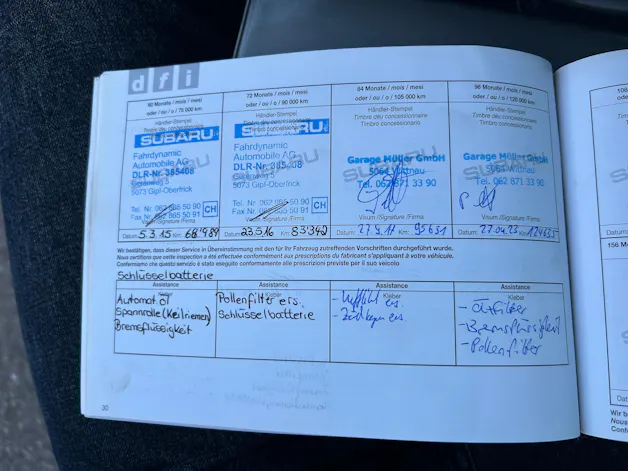 d f i
60 Monate / mois / mesi
oder / ou / o / 75 000 km
72 Monate / mois / mesi
oder / ou / o / 90 000 km
84 Monate / mois / mesi
oder / ou / o / 105 000 km
96 Monate / mois / mesi
oder / ou / o / 120 000 km
Händler-Stempel
Timbre du concessionnaire
Timbro concessionario
SUBARU
Fahrdynamic
Automobile AG
DLR-Nr. 385408
5073 Gipf-Oberfrick
Tel. 062 865 50 90
Fax Nr. 062 865 50 91
CH
Visum/Signature/Firma
Datum: 5.3.15 Km: 68'989
Händler-Stempel
Timbre du concessionnaire
Timbro concessionario
SUBARU
Fahrdynamic
Automobile AG
DLR-Nr. 385408
5073 Gipf-Oberfrick
Tel. 062 865 50 90
Fax Nr. 062 865 50 91
CH
Visum/Signature/Firma
Datum: 23.5.16 Km: 83'342
Händler-Stempel
Timbre du concessionnaire
Timbro concessionario
SUBARU
Garage Müller GmbH
5064 Wittnau
Tel. 062 871 33 90
Visum/Signature/Firma
Km: 95631
Händler-Stempel
Timbre du concessionnaire
Timbro concessionario
SUBARU
Garage Müller GmbH
5064 Wittnau
Tel. 062 871 33 90
Visum/Signature/Firma
Datum: 27.04.23 Km:
Wir bestätigen, dass dieser Service in Übereinstimmung mit den für Ihr Fahrzeug zutreffenden Vorschriften durchgeführt wurde.
Nous certifions que cette inspection a été effectuée conformément aux prescriptions du fabricant s'appliquant à votre véhicule.
Confermiamo che questo servizio è stato eseguito conformemente alle prescrizioni previste per il suo veicolo
Schlüsselbatterie
Assistance
Kleber
Automat öl
Spannrolle (Keilriemen)
Bremsflüssigkeit
Assistance
Kleber
Pollenfilter ers.
Schlüsselbatterie
Assistance
Kleber
- Luftfilt ers.
- Zündkerzen ers.
Assistance
Kleber
- Bremsflüssigkeit
- Pollenfilter
30
108
oder
156 M
Dat
Wir b
Nous
Conf